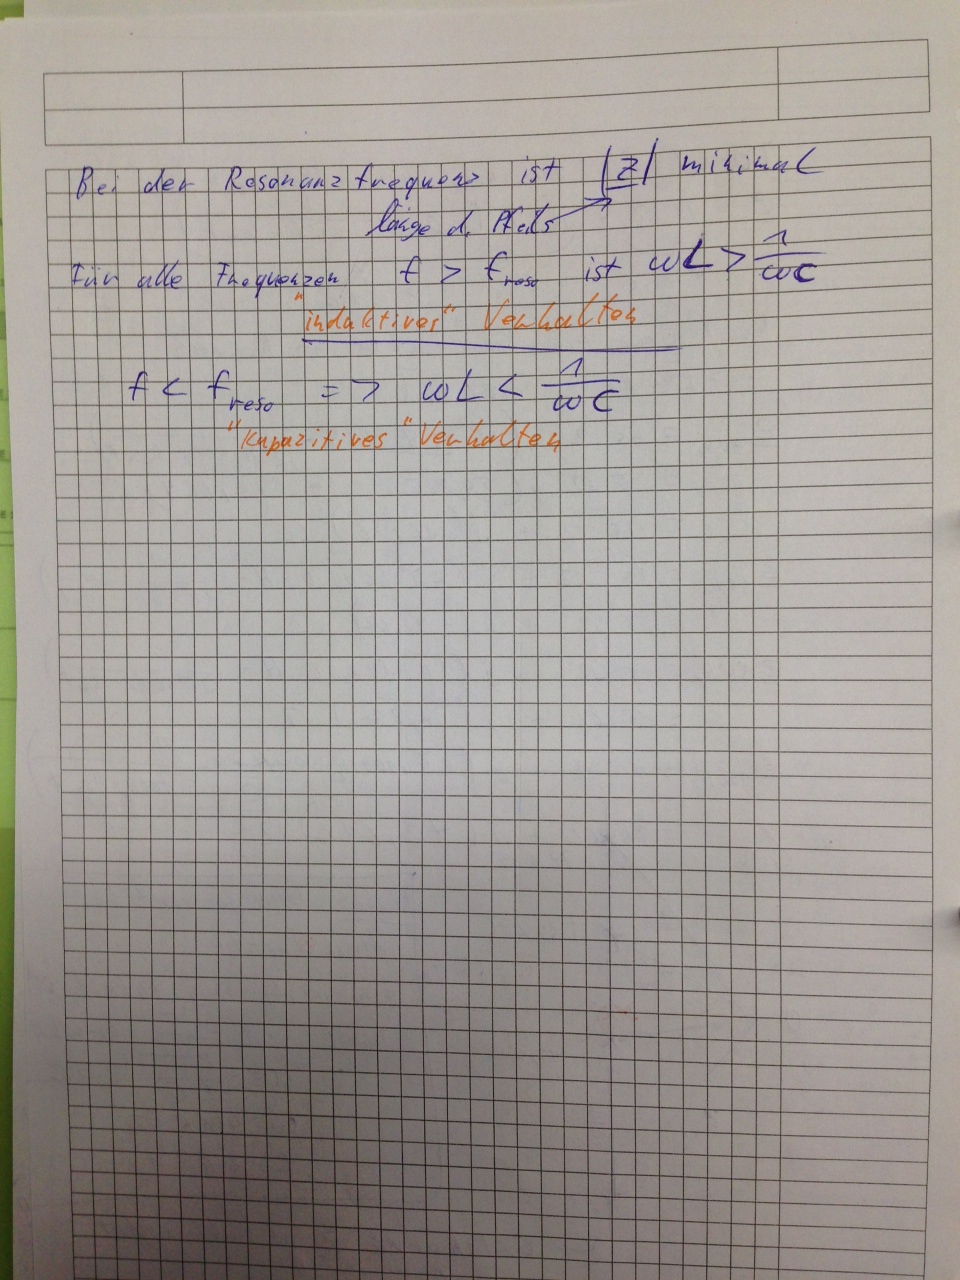 Bei der Resonanzfrequenz ist |Z| minimal
länge d. Pfeils
Für alle Frequenzen f > f_reso ist ωL > 1/ωC
"induktives" Verhalten
f < f_reso => ωL < 1/ωC
"Kapazitives" Verhalten